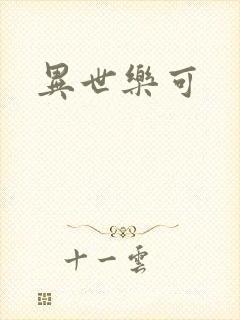 異世樂可
十一雲